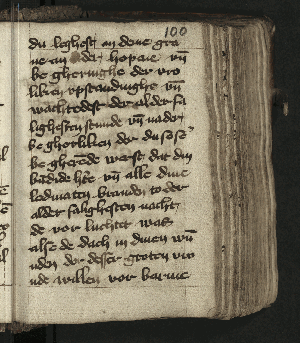 100
du leghest an deme gra
ue an der hopene vn̄
be gheringhe der vro
liken vpstandinghe vn̄
wachtedest der alder sa
lighesten stunde vn̄ na der
be gherliken der du so sē
be gherede werst dat din
vn̄ alle dine
ledmaten branden to der
alder salighesten nacht
de vor luchtet wart
alse de dach in dinen wū
nden dor desser groten vro
ude willen vor barme